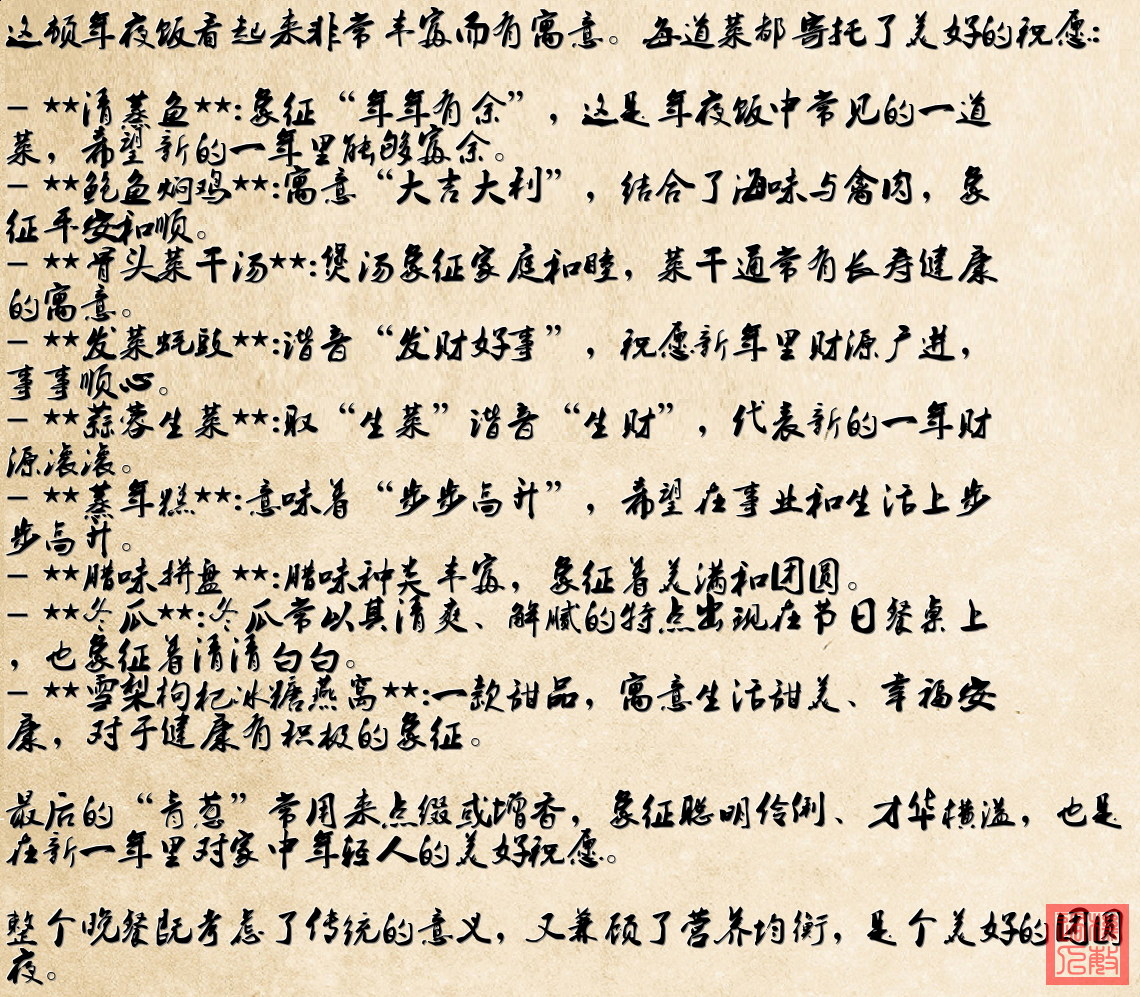 这顿年夜饭看起来非常丰富而有寓意。每道菜都寄托了美好的祝愿：
- **清蒸鱼**:象征“年年有余”，这是年夜饭中常见的一道
菜，希望新的一年里能够富余。
- **鲍鱼焖鸡**:寓意“大吉大利”，结合了海味与禽肉，象
征平安和顺。
- **骨头菜干汤**:煲汤象征家庭和睦，菜干通常有长寿健康
的寓意。
- **发菜蚝豉**:谐音“发财好事”，祝愿新年里财源广进，
事事顺心。
- **蒜蓉生菜**:取“生菜”谐音“生财”，代表新的一年财
源滚滚。
- **蒸年糕**:意味着“步步高升”，希望在事业和生活上步
步高升。
- **腊味拼盘**:腊味种类丰富，象征着美满和团圆。
- **冬瓜**:冬瓜常以其清爽、解腻的特点出现在节日餐桌上
，也象征着清清白白。
- **雪梨枸杞冰糖燕窝**:一款甜品，寓意生活甜美、幸福安
康，对于健康有积极的象征。
最后的“青葱”常用来点缀或增香，象征聪明伶俐、才华横溢，也是
在新一年里对家中年轻人的美好祝愿。
整个晚餐既考虑了传统的意义，又兼顾了营养均衡，是个美好的团圆
夜。